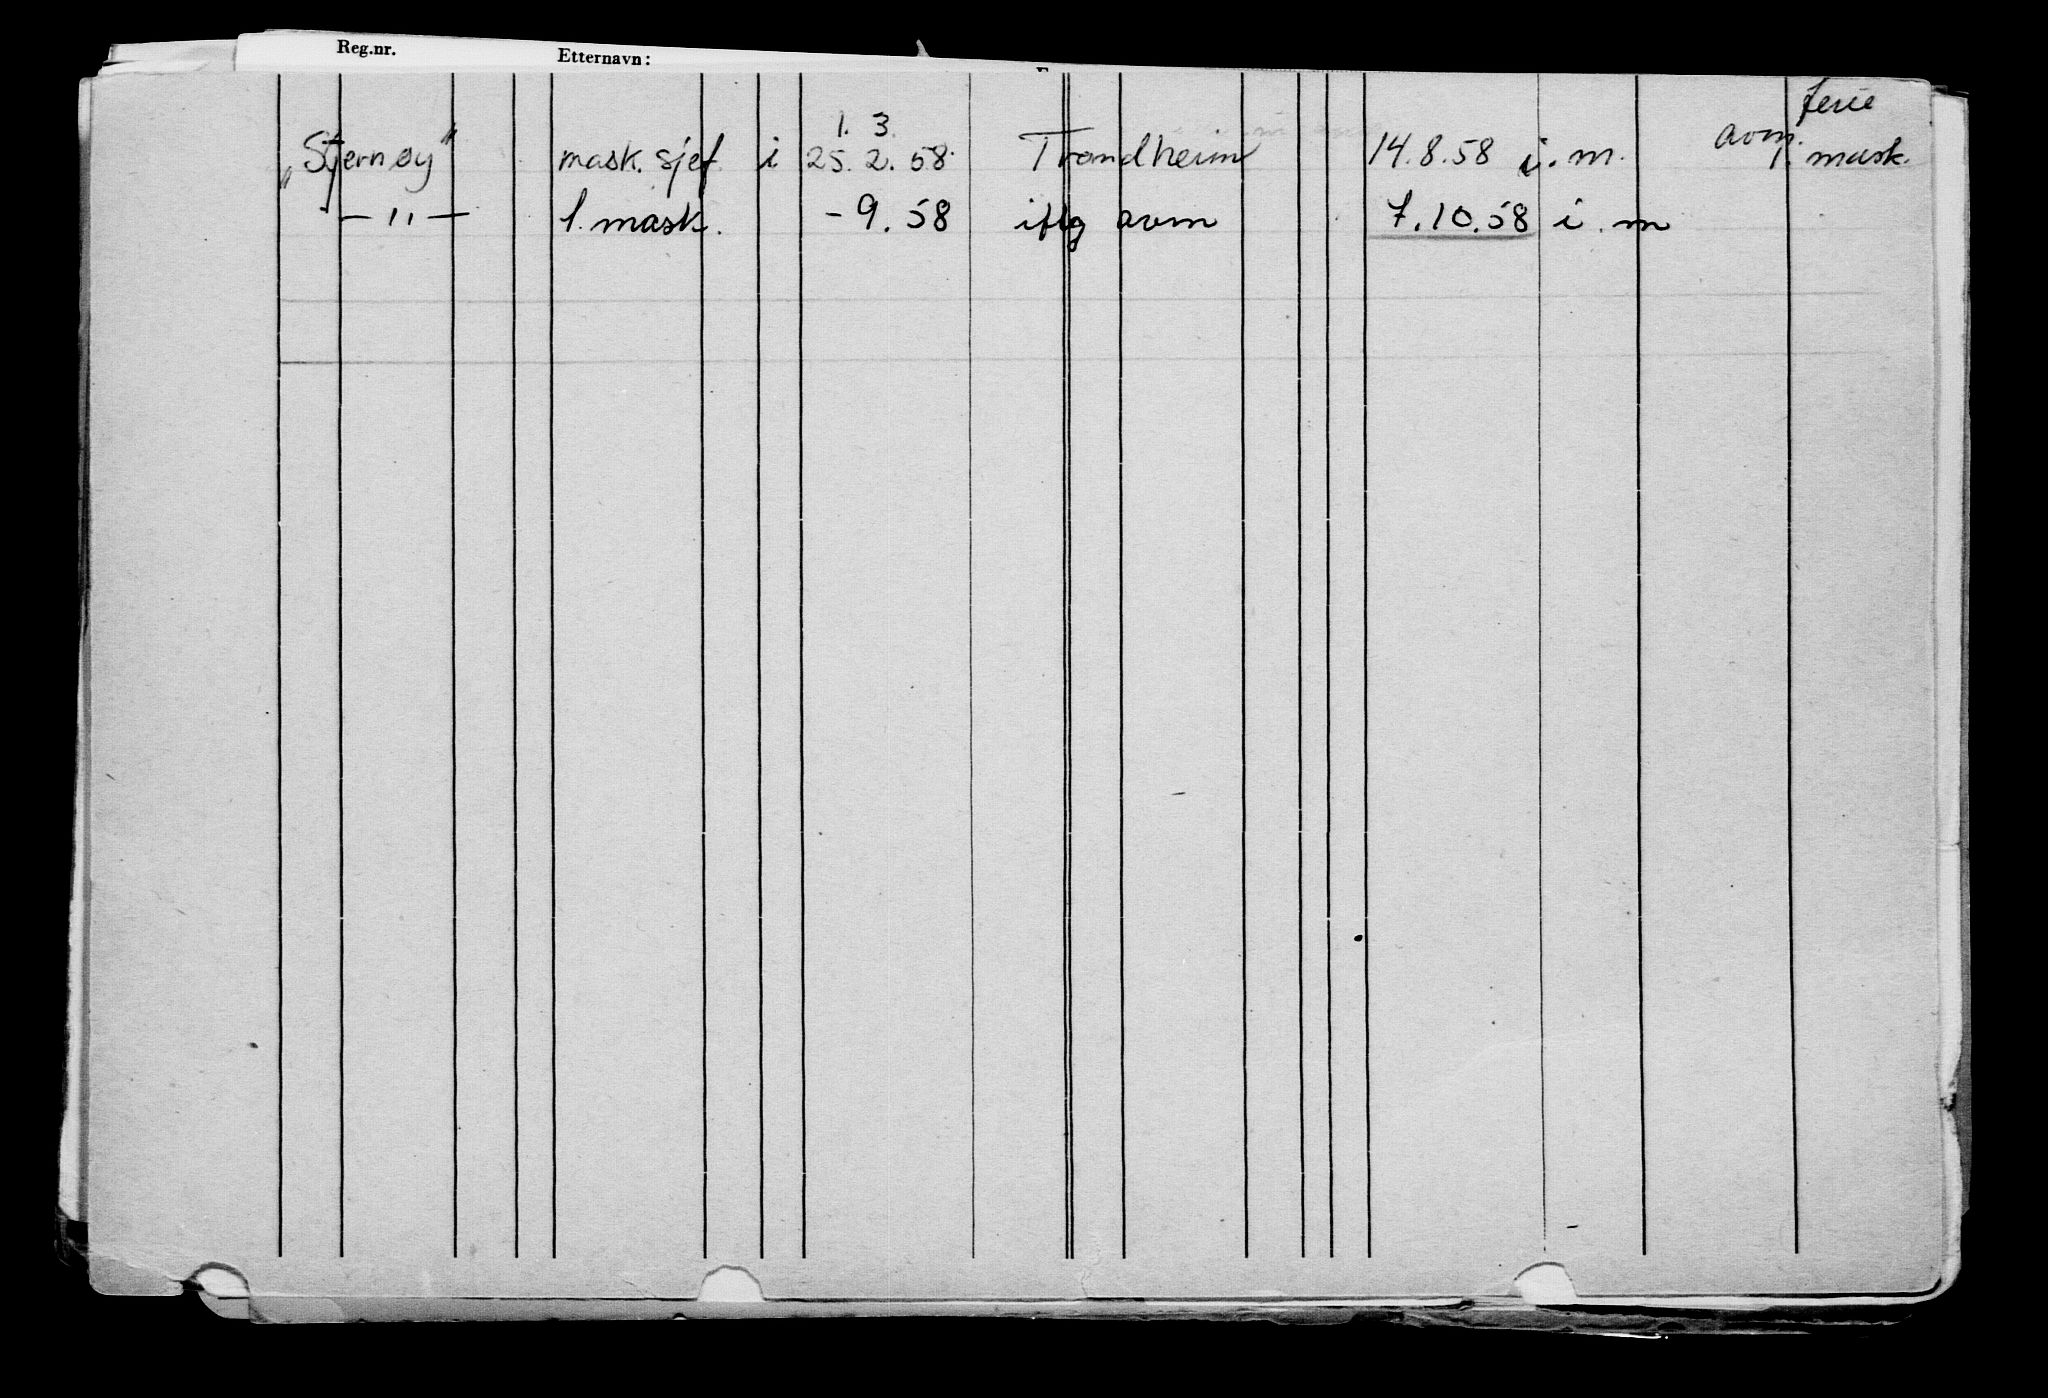 Reg.nr. Etternavn:
ferie
1. 3. avm.
„Stjernøy" mask. sjef i 25. 2. 58 Trondheim 14. 8. 58 i. m. 1. mask.
— " — 1. mask. - 9. 58 iflg avm 7. 10. 58 i. m